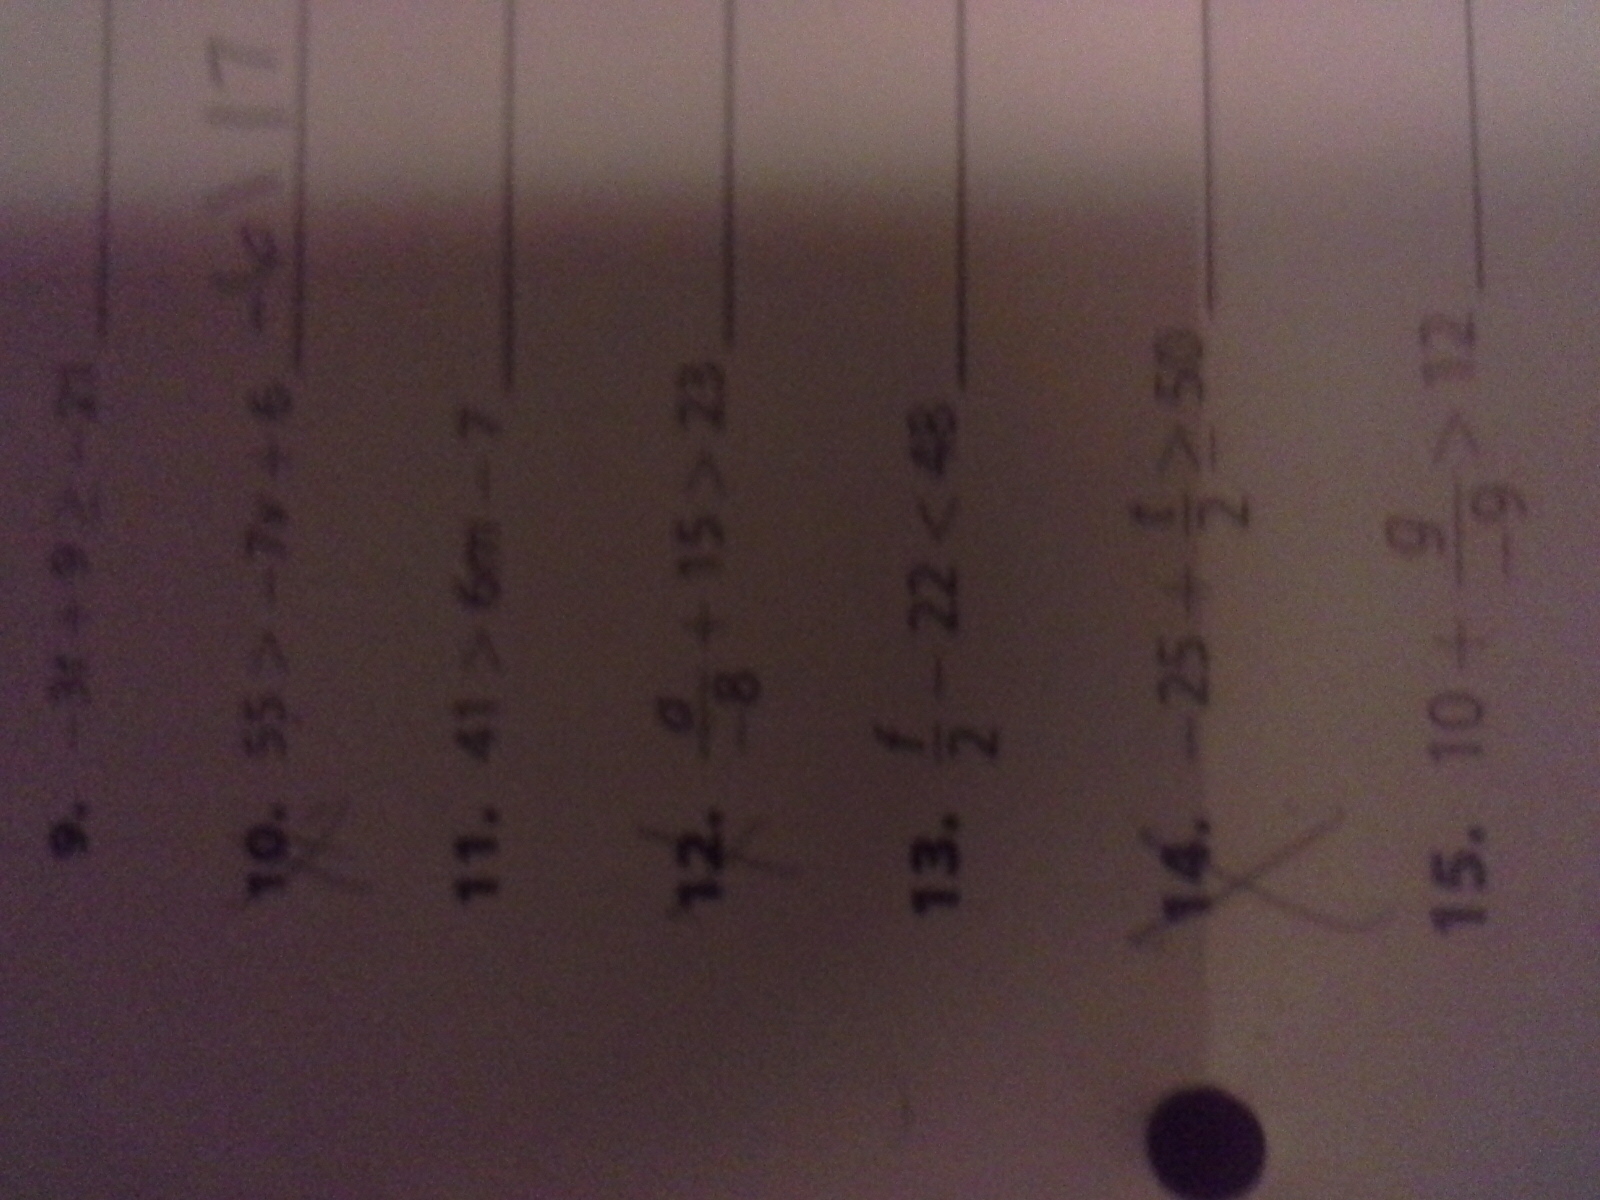 9. -3t + 9 ≥ -21
10. 55 > -7v + 6
11. 41 > 6m - 7
12. a/-8 + 15 > 23
13. f/2 - 22 < 48
14. -25 + t/2 ≥ 50
15. 10 + g/-9 > 12